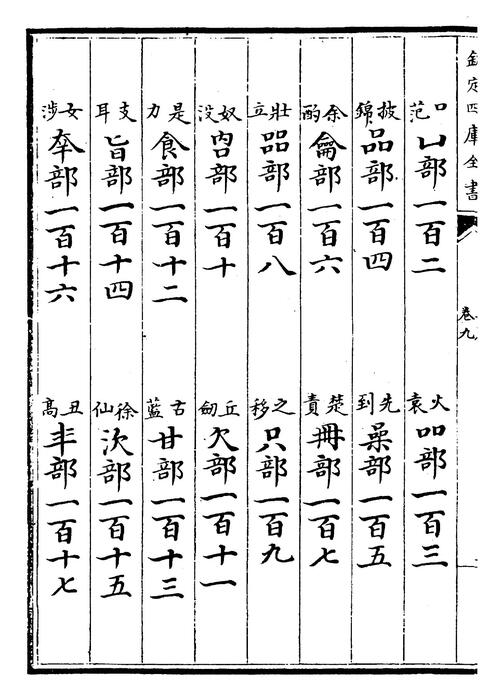 欽定四庫全書
卷九
口范 凵部一百二
火袁 吅部一百三
披錦 品部一百四
先到 喿部一百五
余酌 龠部一百六
楚責 冊部一百七
壯立 㗊部一百八
之移 只部一百九
奴没 㕯部一百十
丘劒 欠部一百十一
是力 食部一百十二
古藍 甘部一百十三
支耳 旨部一百十四
徐仙 㳄部一百十五
女涉 㚔部一百十六
丑高 部一百十七